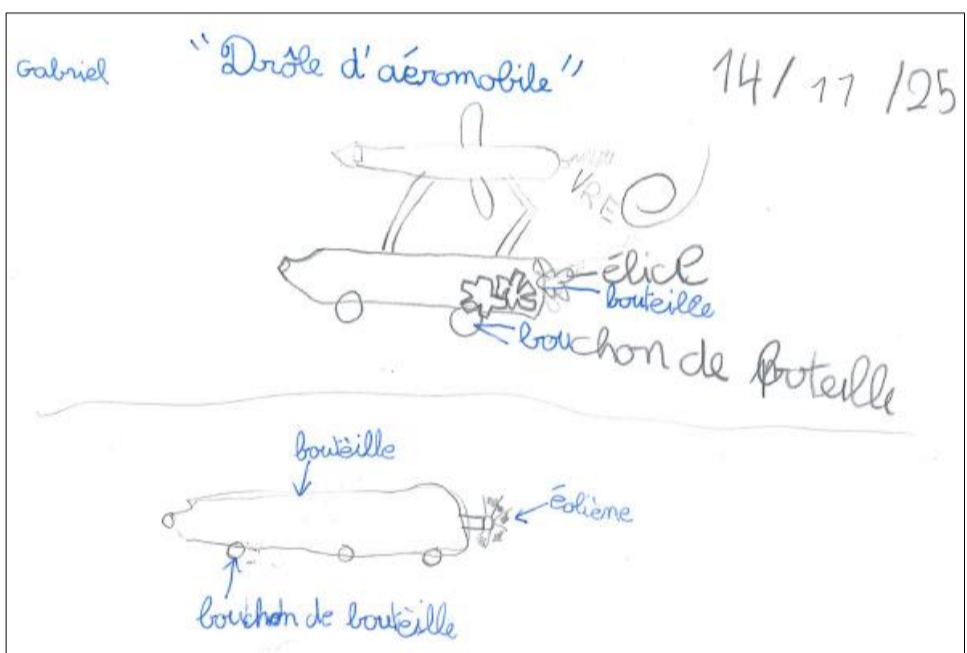 Gabriel
"Drôle d'aéromobile"
14/11/25
VRE
élice
bouteille
bouchon de bouteille
boutèille
éoliène
bouchon de boutèille